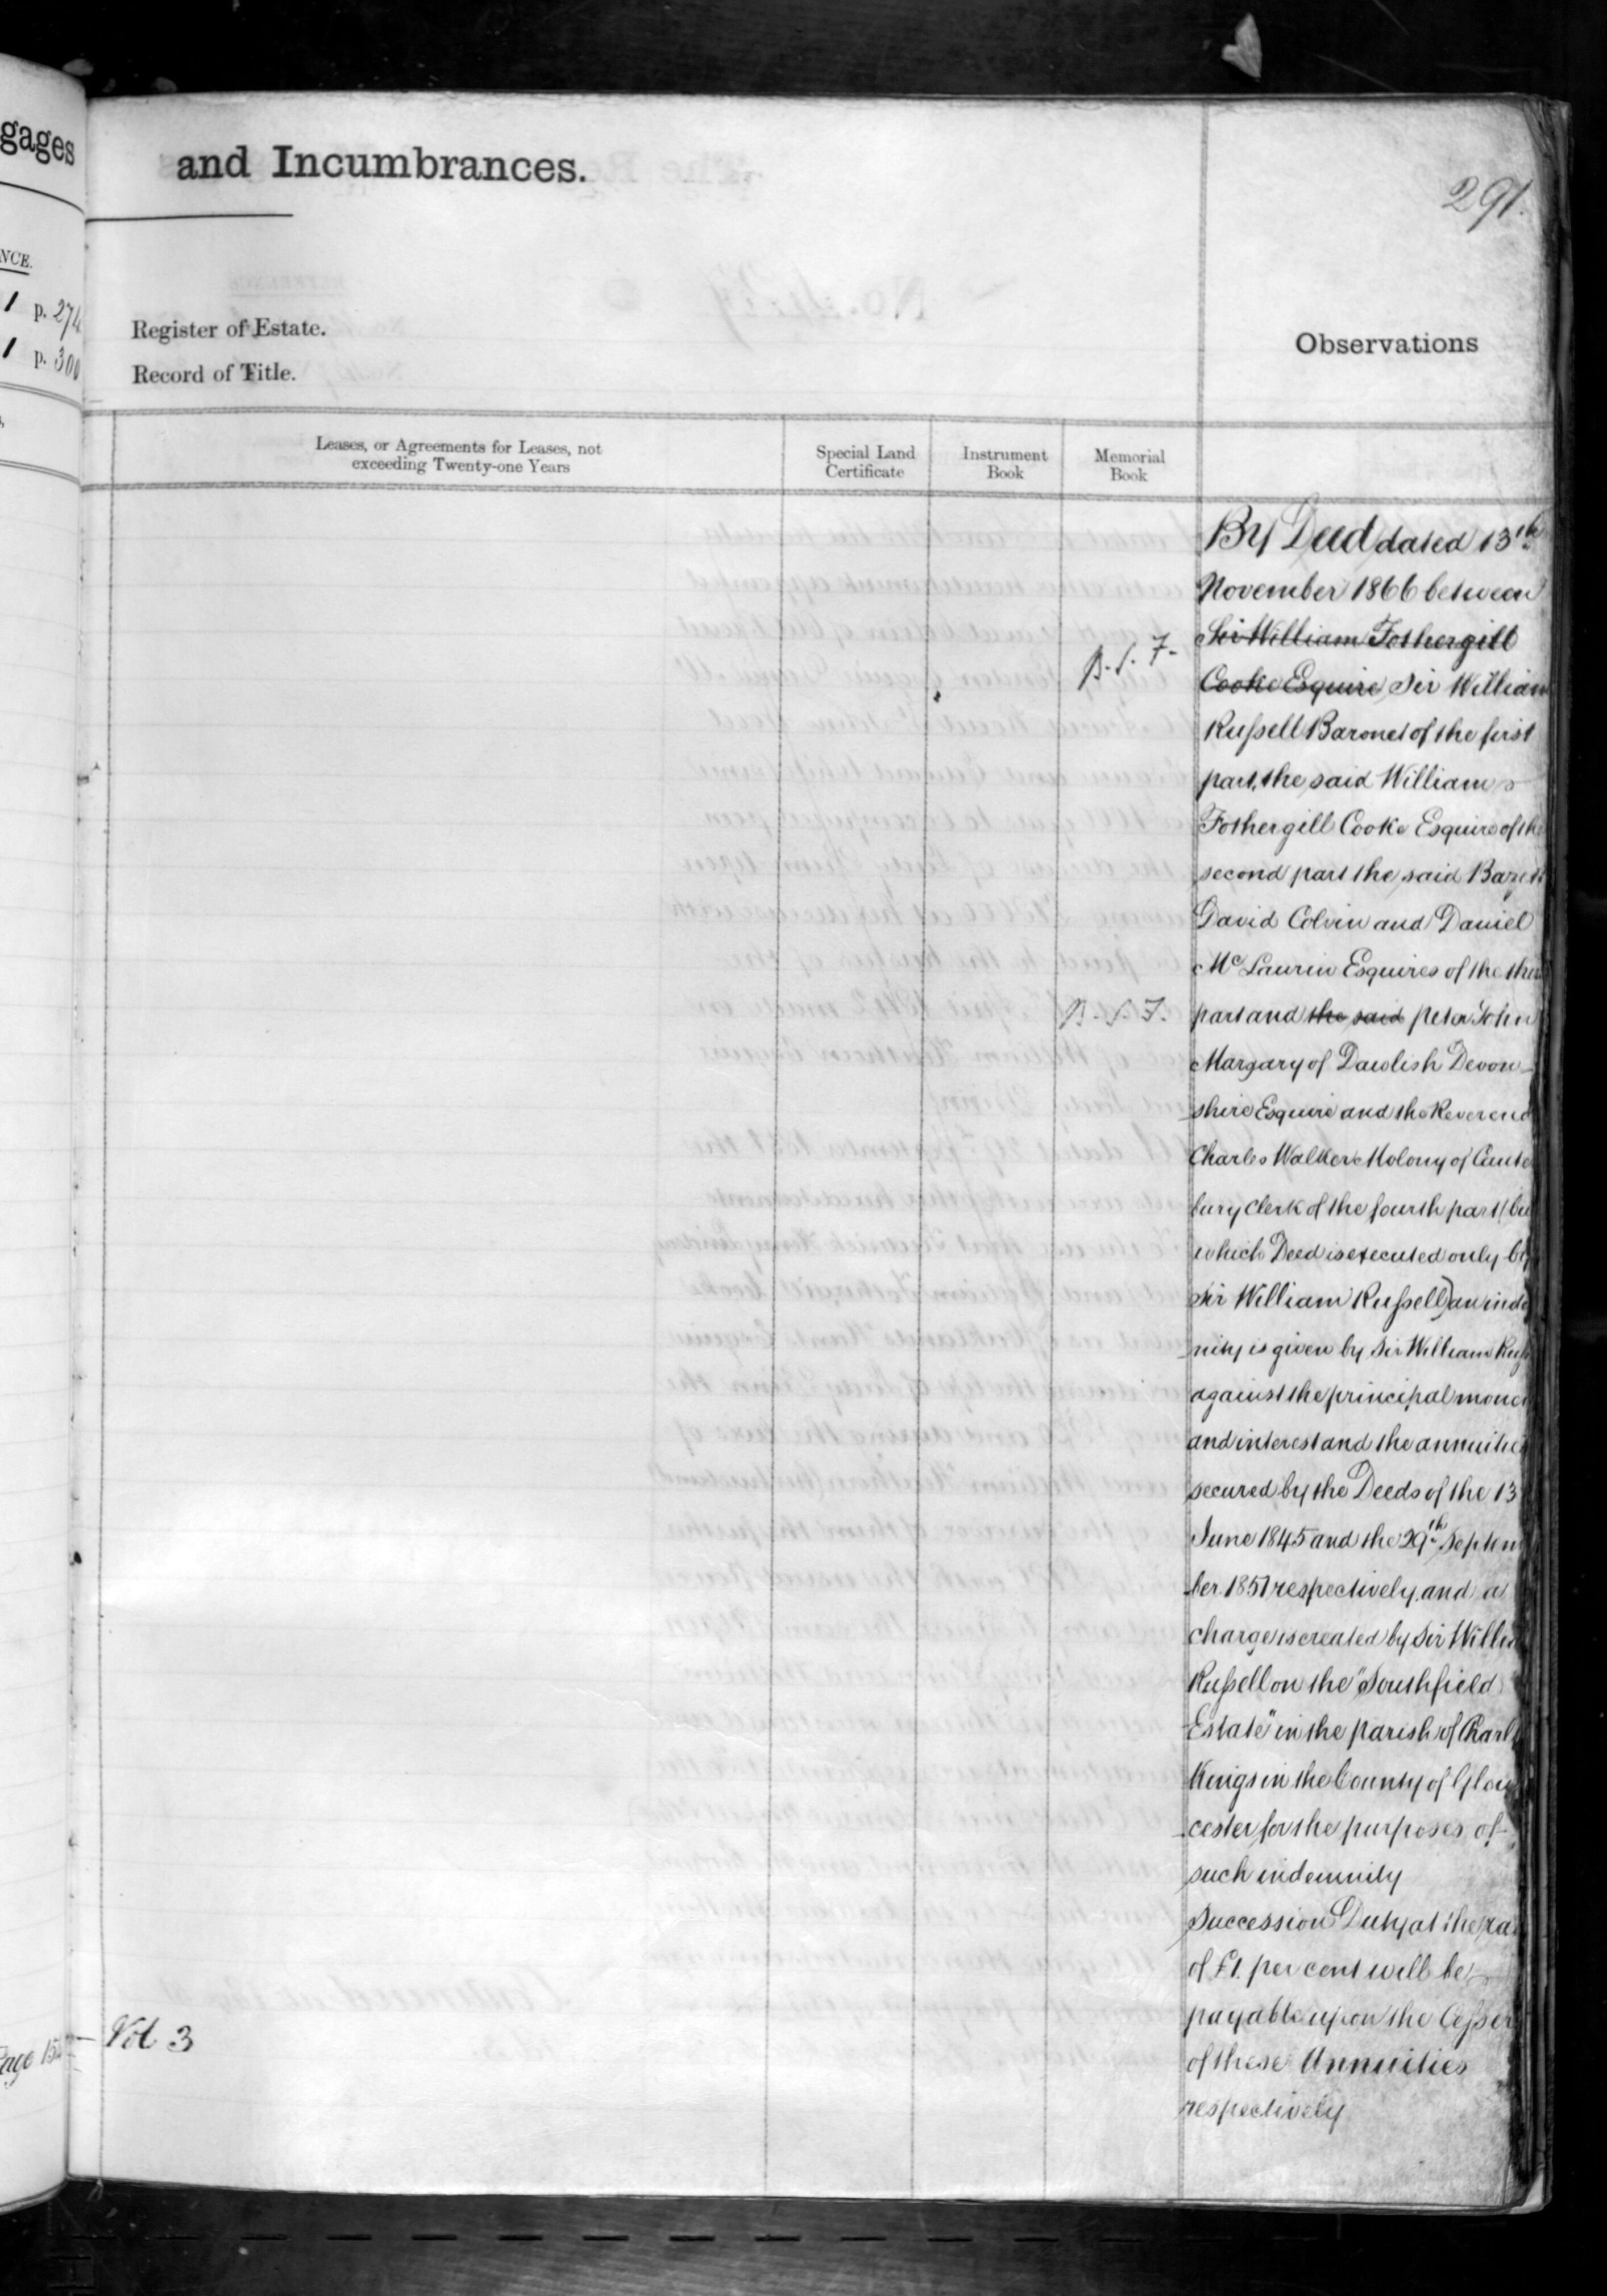 gages
and Incumbrances.
291.
NCE.
1 p. 274
1 p. 300
Register of Estate.
Record of Title.
Observations
Leases, or Agreements for Leases, not
exceeding Twenty-one Years
Special Land
Certificate
Instrument
Book
Memorial
Book
By Deed dated 13th
November 1866 between
Sir William Fothergill
Cooke Esquire Sir William
Russell Baronet of the first
part, the said William
Fothergill Cooke Esquire of the
second part the said Bazett
David Colvin and Daniel
McLaurin Esquires of the third
part and the said Peter John
Margary of Dawlish Devon-
shire Esquire and the Reverend
Charles Walker Molony of Canter
bury Clerk of the fourth part (but
which Deed is executed only by
Sir William Russell) an indem
nity is given by Sir William Russ
against the principal money
and interest and the annuities
secured by the Deeds of the 13
June 1845 and the 29th Septem
ber 1851 respectively. and a
charge is created by Sir William
Russell on the "Southfield
Estate" in the parish of Charl
Kings in the County of Glou
cester for the purposes of
such indemnity
Succession Duty at the ra
of £1. per cent will be
payable upon the Cesser
of these Annuities
respectively
Page 15
Vol 3